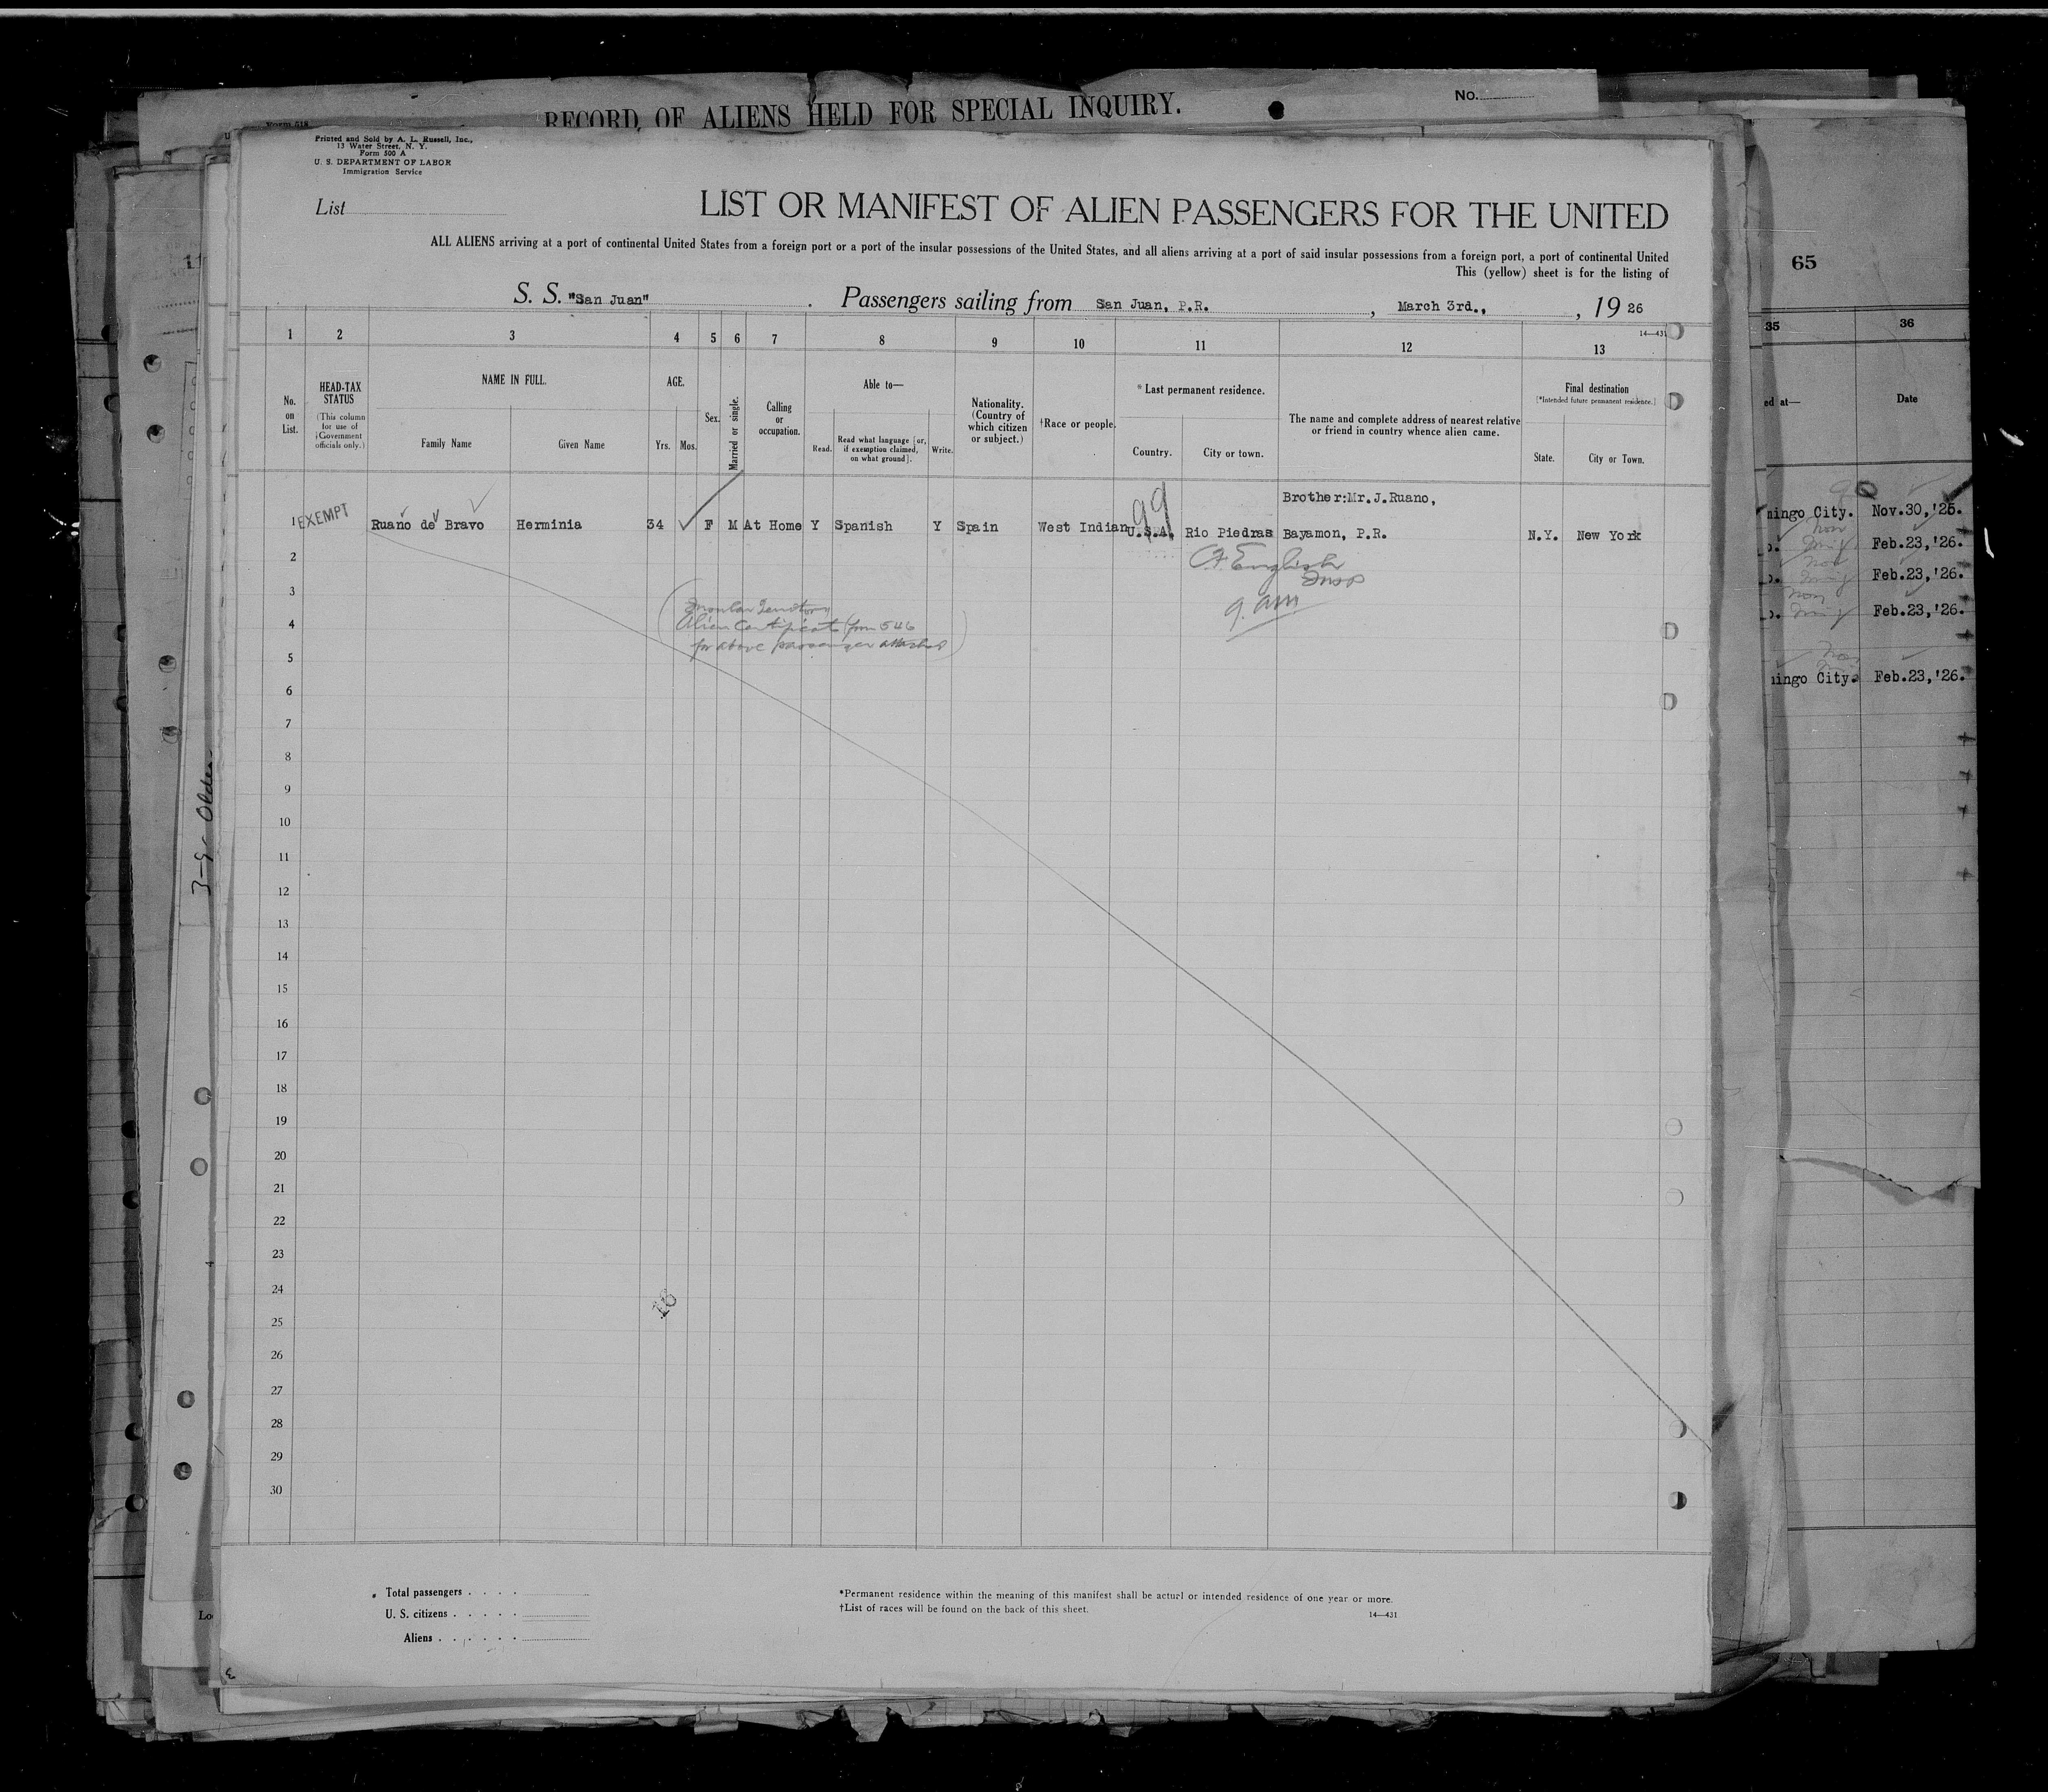 RECORD OF ALIENS HELD FOR SPECIAL INQUIRY.
No.
Form 518
Printed and Sold by A. L. Russell, Inc.,
13 Water Street, N. Y.
Form 500 A
U. S. DEPARTMENT OF LABOR
Immigration Service
List
LIST OR MANIFEST OF ALIEN PASSENGERS FOR THE UNITED
ALL ALIENS arriving at a port of continental United States from a foreign port or a port of the insular possessions of the United States, and all aliens arriving at a port of said insular possessions from a foreign port, a port of continental United
This (yellow) sheet is for the listing of
S. S. "San Juan". Passengers sailing from San Juan, P.R., March 3rd., , 19 26
14—431
1 2 3 4 5 6 7 8 9 10 11 12 13
No. on List.
HEAD-TAX STATUS
(This column for use of Government officials only.)
NAME IN FULL.
Family Name
Given Name
AGE.
Yrs.
Mos.
Sex.
Married or single.
Calling or occupation.
Able to—
Read.
Read what language [or, if exemption claimed, on what ground].
Write.
Nationality. (Country of which citizen or subject.)
†Race or people.
*Last permanent residence.
Country.
City or town.
The name and complete address of nearest relative or friend in country whence alien came.
Final destination
[*Intended future permanent residence.]
State.
City or Town.
99
Brother:Mr.J.Ruano,
1 EXEMPT Ruano de Bravo Herminia 34 F M At Home Y Spanish Y Spain West Indian U.S.A. Rio Piedras Bayamon, P.R. N.Y. New York
2
C.F. English
Insp
3
9. am
(Insular Territory
4
Alien Certificate form 546
for above passenger attached)
5
6
7
8
9
10
11
12
13
14
15
16
17
18
19
20
21
22
23
24
16
25
26
27
28
29
30
Total passengers
U. S. citizens
Aliens
*Permanent residence within the meaning of this manifest shall be acturl or intended residence of one year or more.
†List of races will be found on the back of this sheet.
14—431
65
35 36
ed at—
Date
mingo City. Nov.30,'25.
Feb.23,'26.
Feb.23,'26.
Feb.23,'26.
mingo City. Feb.23,'26.
11
3-9-
4
Lo
3